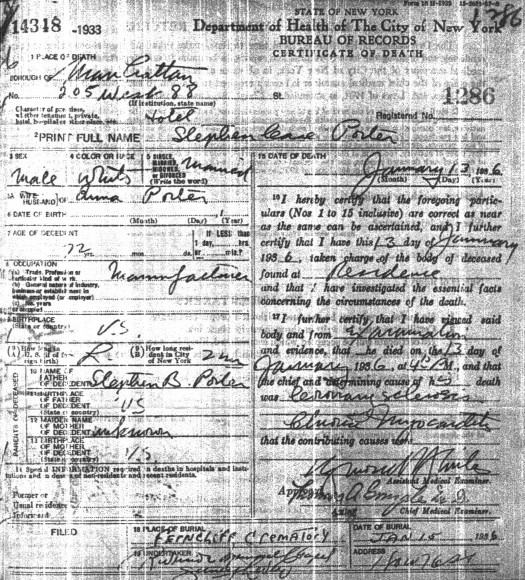 14348 -1933
STATE OF NEW YORK
Department of Health of The City of New York
BUREAU OF RECORDS
CERTIFICATE OF DEATH
1386
1 PLACE OF DEATH
BOROUGH OF Manhattan
No. 205 West 88 St.
(If institution, state name)
Character of premises, whether tenement, private, hotel, hospital or other place, etc. Hotel
Registered No. 1286
2 PRINT FULL NAME Stephen Case Porter
3 SEX Male
4 COLOR OR RACE White
5 SINGLE, MARRIED, WIDOWED, OR DIVORCED (Write the word) Married
5A WIFE OF HUSBAND Anna Porter
6 DATE OF BIRTH (Month) (Day) (Year)
7 AGE OF DECEDENT 72 yrs. mos. ds.
If LESS than 1 day, hrs. or min.?
8 OCCUPATION Manufacturer
(a) Trade, Profession or particular kind of work
(b) General nature of industry, business or establishment in which employed (or employer)
9 BIRTHPLACE (State or country) U.S.
(B) How long resident in City of New York
10 NAME OF FATHER OF DECEDENT Stephen B. Porter
11 BIRTHPLACE OF FATHER OF DECEDENT (State or country) US
12 MAIDEN NAME OF MOTHER OF DECEDENT unknown
13 BIRTHPLACE OF MOTHER OF DECEDENT (State or country) U.S.
PARENTS OF DECEASED
14 Special INFORMATION required in deaths in hospitals and institutions and in deaths of non-residents and recent residents.
Former or Usual residence
15 DATE OF DEATH January 13 1936
(Month) (Day) (Year)
16 I hereby certify that the foregoing particulars (Nos 1 to 15 inclusive) are correct as near as the same can be ascertained, and I further certify that I have this 13 day of January 1936, taken charge of the body of deceased found at Residence
and that I have investigated the essential facts concerning the circumstances of the death.
17 I further certify that I have viewed said body and from Examination
and evidence, that he died on the 13 day of January 1936, at 4 PM, and that the chief and determining cause of his death was Coronary sclerosis
Chronic Myocarditis
that the contributing causes were
Assistant Medical Examiner.
Chief Medical Examiner.
FILED
18 PLACE OF BURIAL
FERNCLIFF CREMATORY
DATE OF BURIAL
JAN 15 1936
19 UNDERTAKER
ADDRESS